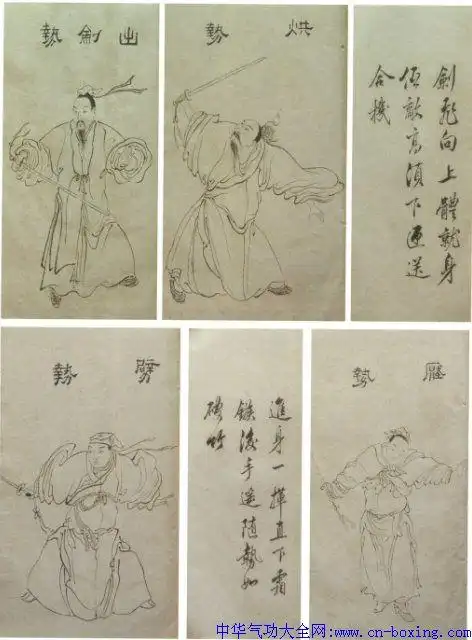 出劍勢
烘勢
劍飛向上體就身
敵高須下送
合機
劈勢
進身一揮直下霜
鋒後手遙隨勢如
破竹
勢
中华气功大全网:www.cn-boxing.com